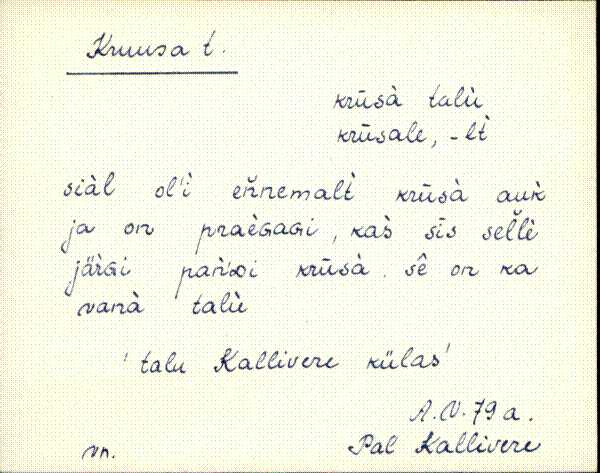 Kruusa t.
krūsà talù
krūsale, -lt̀
siàl ol'ì eňnemalt̀ krūsà auk̀
ja on praèGaGi, kas̀ sīs sel̆lè
jär̀Gi pan̆'Di krūsà. sê on ka
vanà talù
'talu Kallivere külas'
A.V. 79 a.
vn. Pal Kallivere